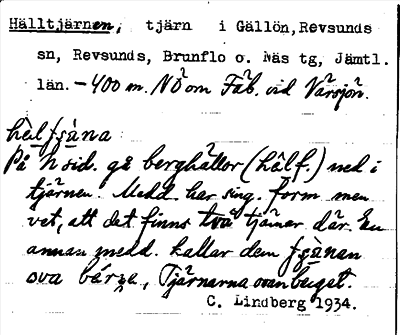 Hälltjärnen, tjärn i Gällön, Revsunds
sn, Revsunds, Brunflo o. Näs tg, Jämtl.
län. – 400 m. NÖ om Fäb. vid Värsjön.
På N sid. gå berghällor (hälf.) ned i
tjärnen. Medd. har sing. form men
vet, att det finns två tjärnar där. En
annan medd. kallar dem
ova bérge, Tjärnarna ovan berget.
C. Lindberg 1934.